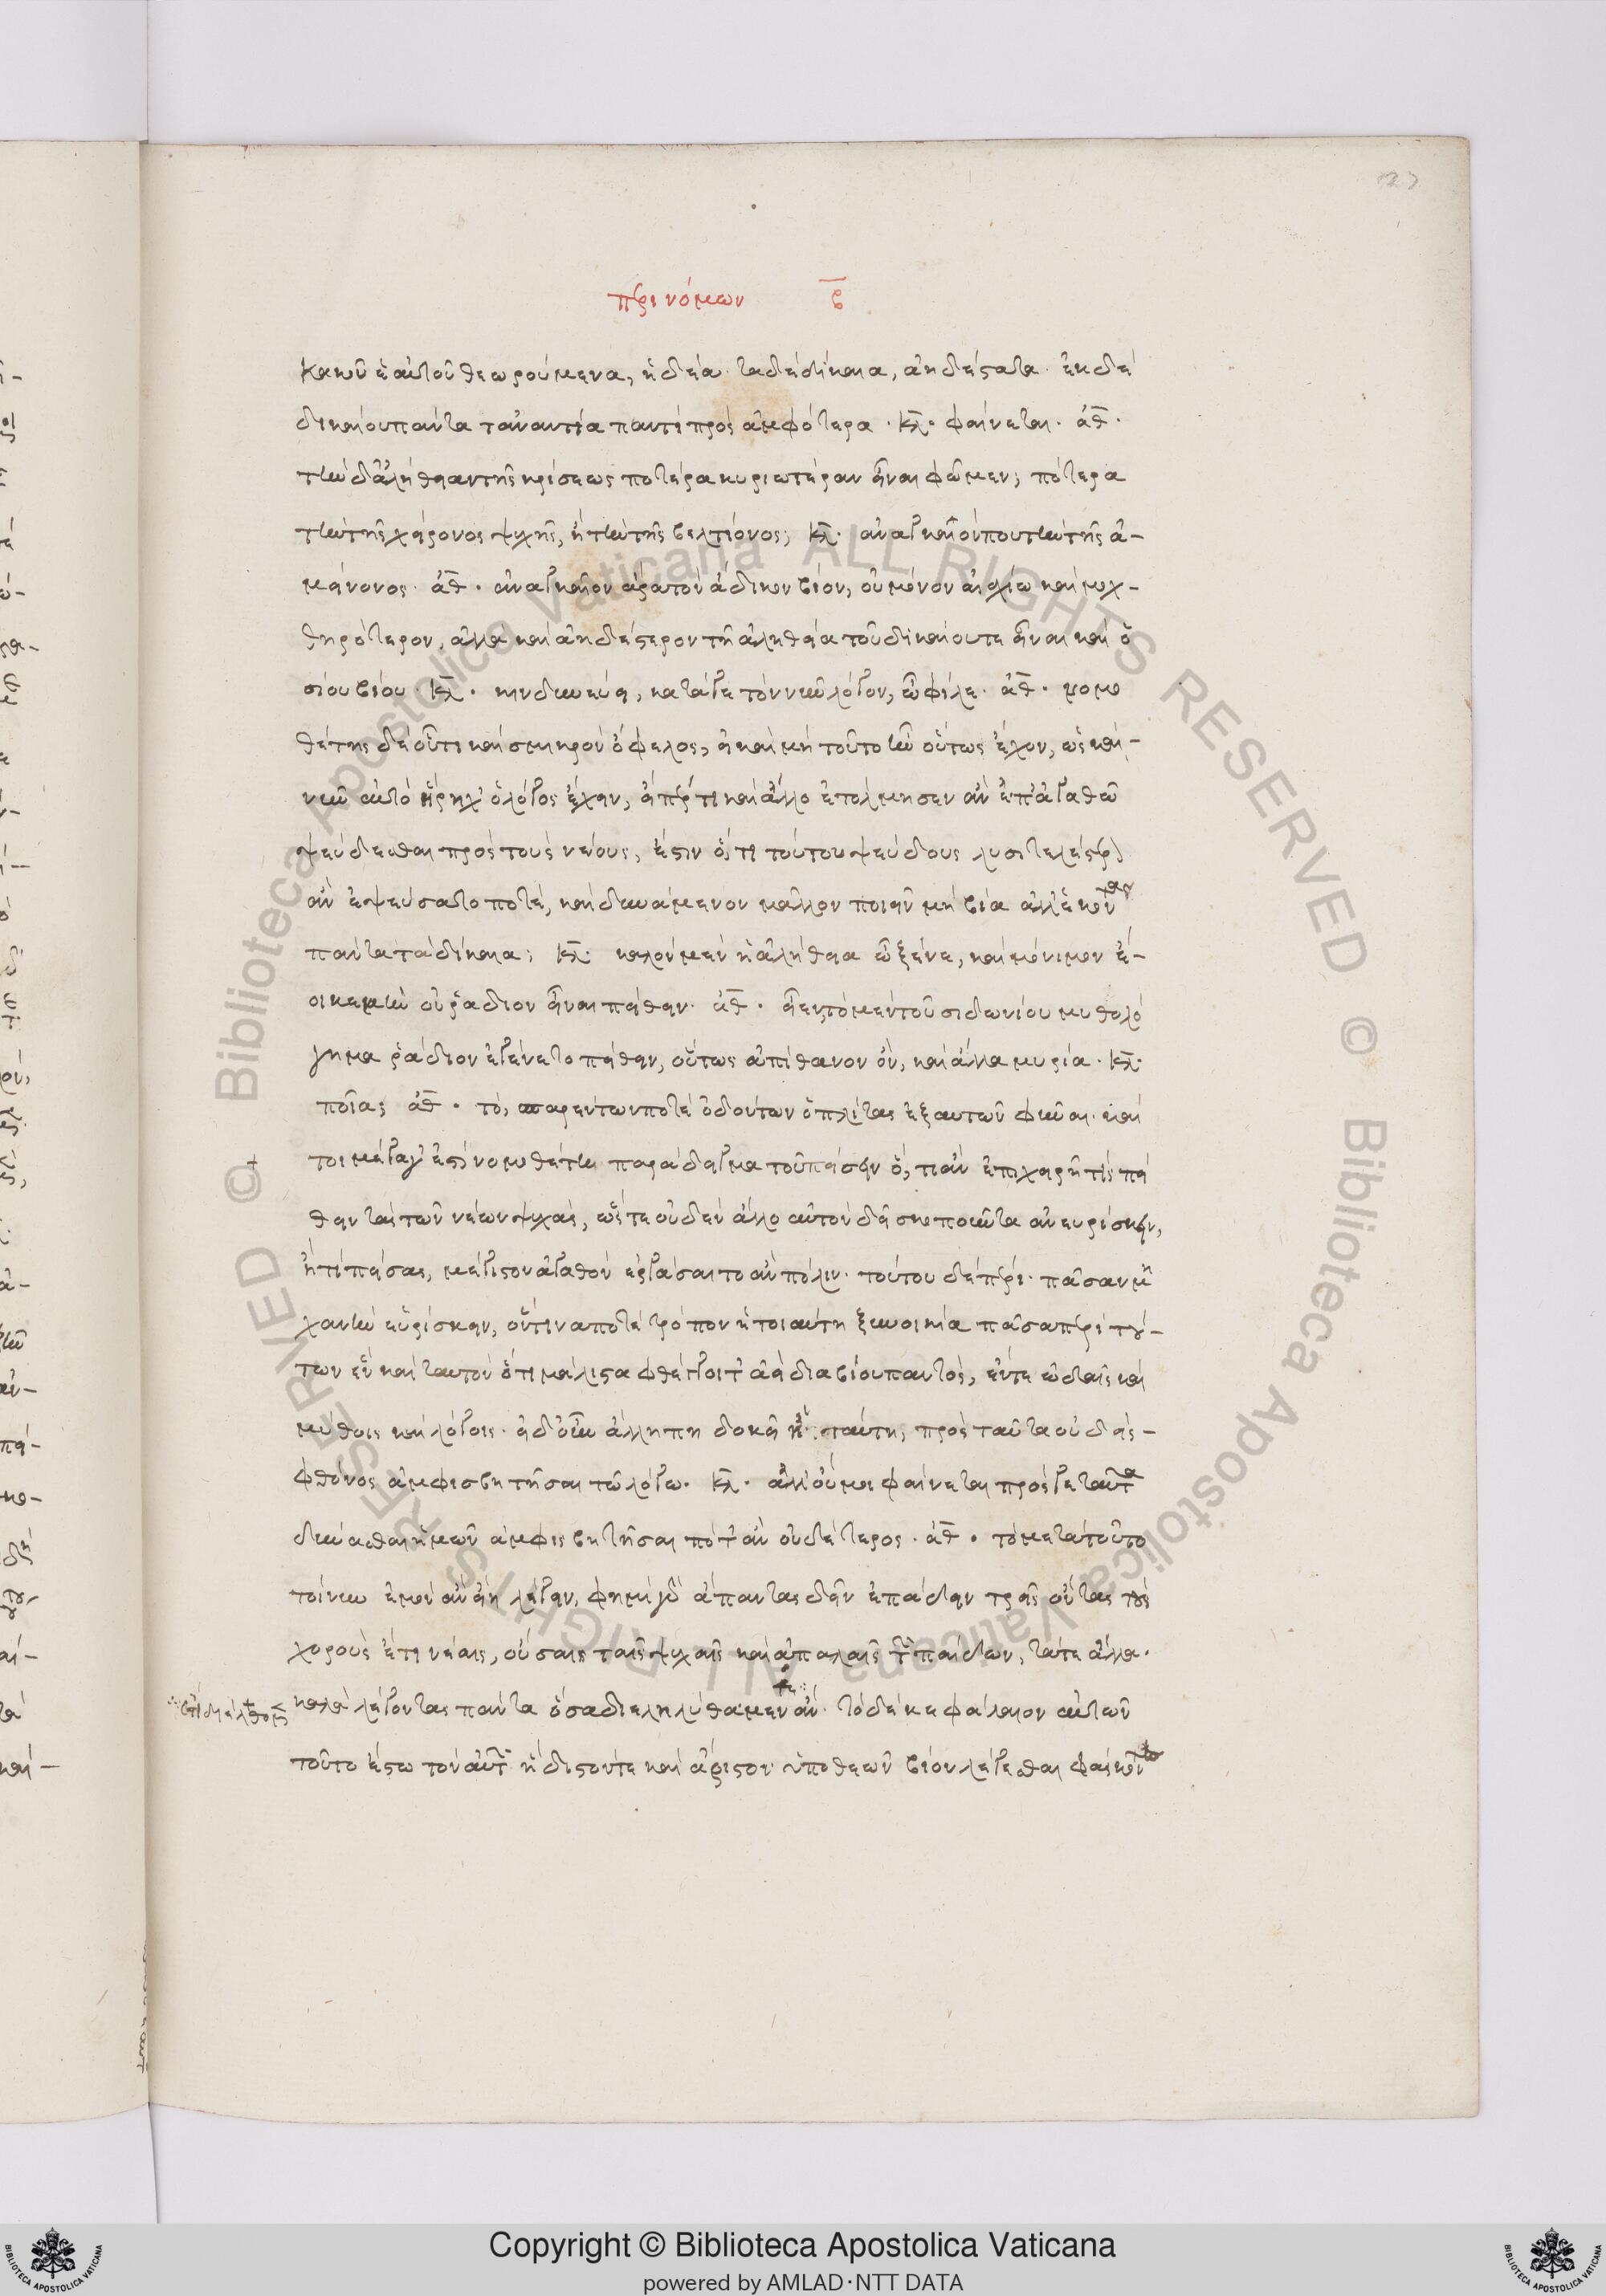 περὶ νόμων β
κακοῦ ἑαυτοῦ θεωρούμενα, ἡδέα· τὰ δὲ δίκαια, ἀηδέστατα· ἐκ δὲ
δικαίου πάντα τἀναντία παντὶ πρὸς ἀμφότερα· κλ· φαίνεται· ἀθ·
τὴν δ' ἀλήθειαν τῆς κρίσεως ποτέρα κυριωτέραν εἶναι φῶμεν; πότερα
τὴν τῆς χείρονος ψυχῆς, ἢ τὴν τῆς βελτίονος; κλ· ἀναγκαῖόν που τὴν τῆς ἀ-
μείνονος· ἀθ· ἀναγκαῖον ἄρα τὸν ἄδικον βίον, οὐ μόνον αἰσχίω καὶ μοχ-
θηρότερον, ἀλλὰ καὶ ἀηδέστερον τῇ ἀληθείᾳ τοῦ δικαίου τε εἶναι καὶ ὁ
σίου βίου· κλ· κινδυνεύει, κατά γε τὸν νῦν λόγον, ὦ φίλε· ἀθ· νομο
θέτης δὲ οὗ τι καὶ σμικρὸν ὄφελος, εἰ καὶ μὴ τοῦτο ἦν οὕτως ἔχον, ὡς καὶ
νῦν αὐτὸ ᾕρηχ' ὁ λόγος ἔχειν, εἴπερ τι καὶ ἄλλο ἐτόλμησεν ἂν ἐπ' ἀγαθῷ
ψεύδεσθαι πρὸς τοὺς νέους, ἔστιν ὅ, τι τούτου ψεῦδος λυσιτελέστερον
ἂν ἐψεύσατο ποτὲ, καὶ δυνάμενον μᾶλλον ποιεῖν μὴ βίᾳ ἀλλ' ἑκόντας
πάντα τὰ δίκαια; κλ· καλὸν μὲν ἡ ἀλήθεια ὦ ξένε, καὶ μόνιμον ἔ-
οικε μὴν οὐ ῥάδιον εἶναι πείθειν· ἀθ· εἶεν, τὸ μὲν τοῦ σιδωνίου μυθολό
γημα ῥάδιον ἐγένετο πείθειν, οὕτως ἀπίθανον ὄν, καὶ ἄλλα μυρία· κλ·
ποῖα; ἀθ· τό, σπαρέντων ποτὲ ὀδόντων ὁπλίτας ἐξ αυτῶν φῦναι· καί
τοι μέγα γ' ἐστὶ νομοθέτῃ παράδειγμα τοῦ πείσειν ὅ, τι ἂν ἐπιχειρῇ τὶς πεί
θειν τὰς τῶν νέων ψυχὰς, ὥστε οὐδὲν ἄλλο αὐτὸν δεῖ σκοποῦντα ἀνευρίσκειν,
ἢ τί πείσας, μέγιστον ἀγαθὸν ἐργάσαιτο ἂν πόλιν· τούτου δὲ πέρι· πᾶσαν μη
χανὴν εὑρίσκειν, ὅντινα ποτὲ τρόπον ἡ τοιαύτη ξυνοικία πᾶσα περὶ τού-
των ἓν καὶ ταυτὸν ὅτι μάλιστα φθέγγοιτ' ἀεὶ δια βίου παντὸς, ἔν τε ὠδαῖς καὶ
μύθοις καὶ λόγοις· εἰ δ' οὖν ἄλλῃ πῃ δοκεῖ ἢ ταύτῃ, πρὸς ταῦτα οὐδεὶς
φθόνος ἀμφισβητῆσαι τῷ λόγῳ· κλ· ἀλλ' οὔ μοι φαίνεται πρός γε ταῦτα
δύνασθαι ἡμῶν ἀμφισβητῆσαι πότ' ἂν οὐδέτερος· ἀθ· τὸ μετα τοῦτο
τοίνυν ἐμὸν ἂν εἴη λέγειν, φημὶ γὰρ ἅπαντας δεῖν ἐπάδειν τρεῖς ὄντας τοὺς
χοροὺς ἔτι νέαις, οὔσαις ταῖς ψυχαῖς καὶ ἀπαλαῖς τῶν παίδων, τά τε ἄλλα
καλὰ λέγοντας πάντα ὅσα διεληλύθαμεν ἂν· τὸ δὲ κεφάλαιον αὐτῶν
τοῦτο ἔστω τὸν αὐτὸν ἥδιστόν τε καὶ ἄριστον ὑπὸ θεῶν βίον λέγεσθαι φάσκοντες